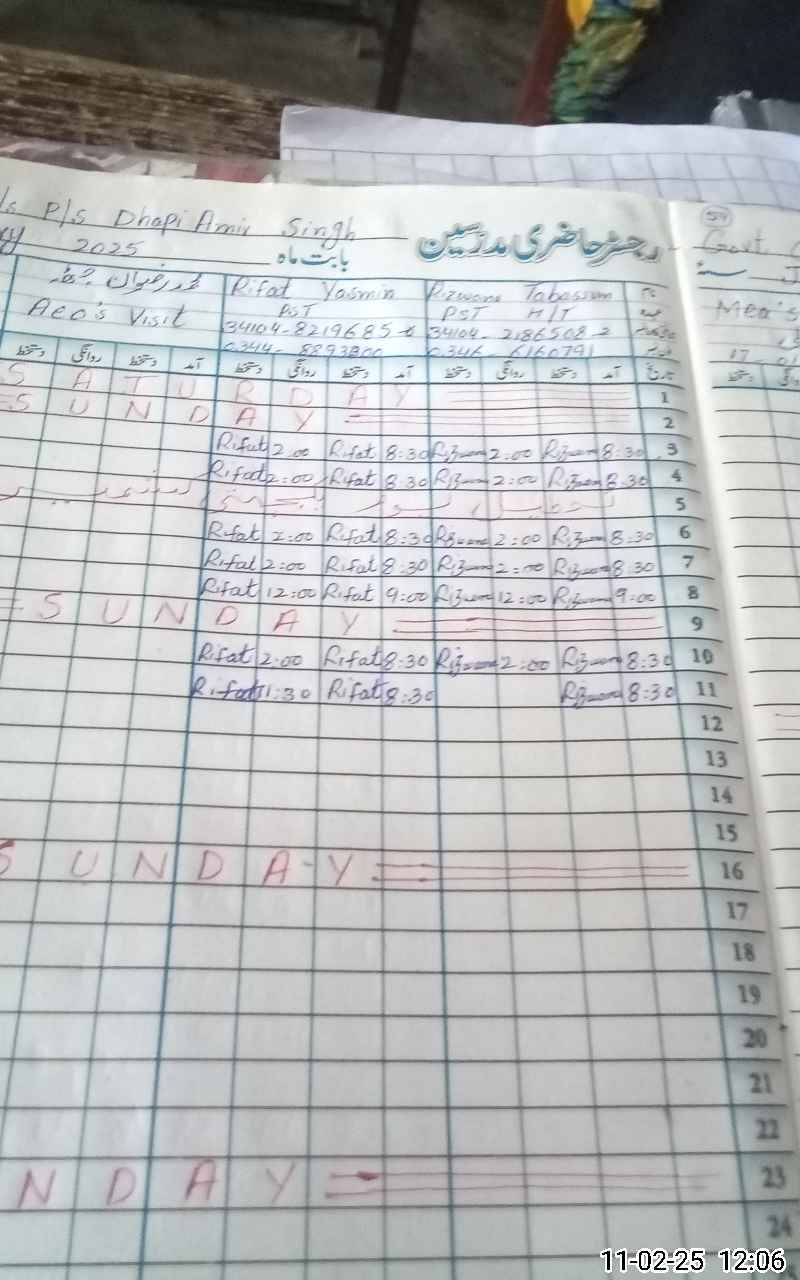 P/S Dhapi Amir Singh
رجسٹر حاضری مدرسین
2025
بابت ماہ
محمد رضوان
Rifat Yasmin
Rizwana Tabassum
نام
Aeo's Visit
PST
PST H/T
عہدہ
34104-8219685-6
34104-2186508-2
0344-8893800
0346-6160791
دستخط روانگی دستخط آمد دستخط روانگی دستخط آمد دستخط روانگی دستخط آمد تاریخ
SATURDAY 1
SUNDAY 2
Rifat 2:00 Rifat 8:30 Rizwana 2:00 Rizwana 8:30 3
Rifat 2:00 Rifat 8:30 Rizwana 2:00 Rizwana 8:30 4
5
Rifat 2:00 Rifat 8:30 Rizwana 2:00 Rizwana 8:30 6
Rifat 2:00 Rifat 8:30 Rizwana 2:00 Rizwana 8:30 7
Rifat 12:00 Rifat 9:00 Rizwana 12:00 Rizwana 9:00 8
SUNDAY 9
Rifat 2:00 Rifat 8:30 Rizwana 2:00 Rizwana 8:30 10
Rifat 11:30 Rifat 8:30 Rizwana 8:30 11
12
13
14
15
SUNDAY 16
17
18
19
20
21
22
NDAY 23
24
Govt.
Mea's
دستخط
11-02-25 12:06